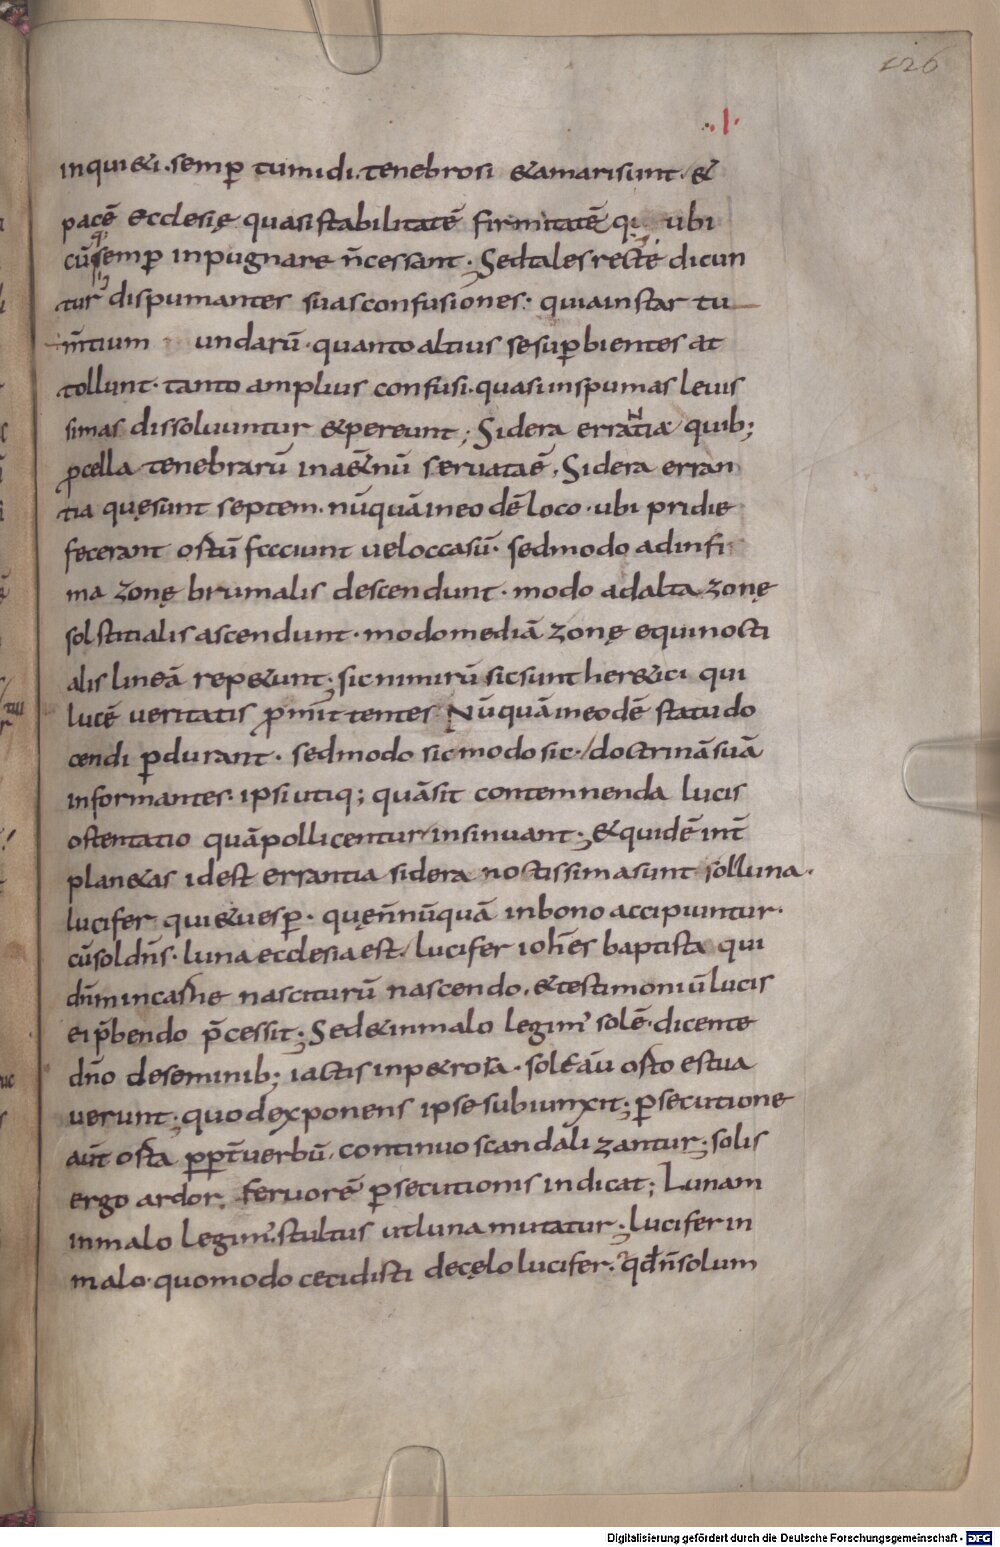 126
.I.
inqui&i. semꝑ tumidi. tenebrosi &amarisunt. &
pacē ecclesię quasi stabilitatē firmitatē qi ubi
cū semꝑ inpugnare ñcessant. Sed tales recte dicun
tur dispumantes suas confusiones. quia instar tu
m̄tium undarū. quanto altius se suꝑbientes at
tollunt. tanto amplius confusi. quasi in spumas leuis
simas dissoluuntur &pereunt; Sidera errantia quib;
ꝓcella tenebrarū in a&̄nū seruata ē. Sidera erran
tia quę sunt septem. nūquā in eo dē loco. ubi pridie
fecerant ostū facciunt uel occasū. sed modo ad infi
ma zonę brumalis descendunt. modo ad alta zonę
solstitialis ascendunt. modo mediā zonę equinocti
alis lineā rep&unt; sic nimirū sic sunt her&ici qui
lucē ueritatis ꝓmittentes Nūquā in eodē statu do
cendi ꝑdurant. sed modo sic modo sic. doctrinā suā
informantes. ipsi utiq; quā sit contemnenda lucis
ostentatio quā pollicentur insinuant; &quidē int̄
plan&as id est errantia sidera noctissima sunt sol luna.
lucifer qui &uesꝑ. quę ñnūquā in bono accipiuntur.
cū sol dn̄s. luna ecclesia est. lucifer ioh̄es baptista qui
dn̄m in carne nasciturū nascendo. &testimoniū lucis
ei p̄bendo p̄cessit; Sed &in malo legim' solē. dicente
dn̄o de seminib; iactis in p&rosa. sole aū orto estua
uerunt; quod exponens ipse subiunxit; ꝑsecutione
aūt orta ꝓpt̄ uerbū. continuo scandalizantur; solis
ergo ardor. feruorē ꝑsecutionis indicat; Lunam
in malo legim'. stultus ut luna mutatur; luciferin
malo. quomodo cecidisti de cęlo lucifer. qđ ñ solum
Digitalisierung gefördert durch die Deutsche Forschungsgemeinschaft - DFG